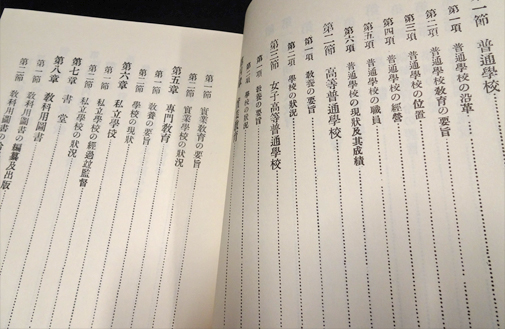 一節 普通學校
第一項 普通學校の沿革
第二項 普通學校教育の要旨
第三項 普通學校の位置
第四項 普通學校の經營
第五項 普通學校の職員
第六項 普通學校の現狀及其成績
第二節 高等普通學校
第一項 教養の要旨
第二項 學校の狀況
第三節 女子高等普通學校
第一項 教養の要旨
第二項 學校の狀況
第一節 實業教育の要旨
第二節 實業學校の狀況
第五章 專門教育
第一節 教養の要旨
第二節 學校の現狀
第六章 私立學校
第一節 私立學校の經過竝監督
第二節 私立學校の狀況
第七章 書堂
第八章 教科用圖書
第一節 教科用圖書の編纂及出版
第二節 教科用圖書の